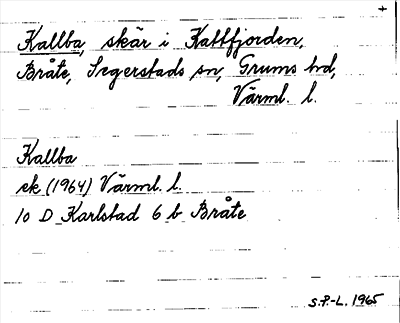 +
Kallba, skär i Kattfjorden,
Bråte, Segerstads sn, Grums hd,
Värml. l.
Kallba
ek (1964) Värml. l.
10 D Karlstad 6 b Bråte
S.P.-L. 1965